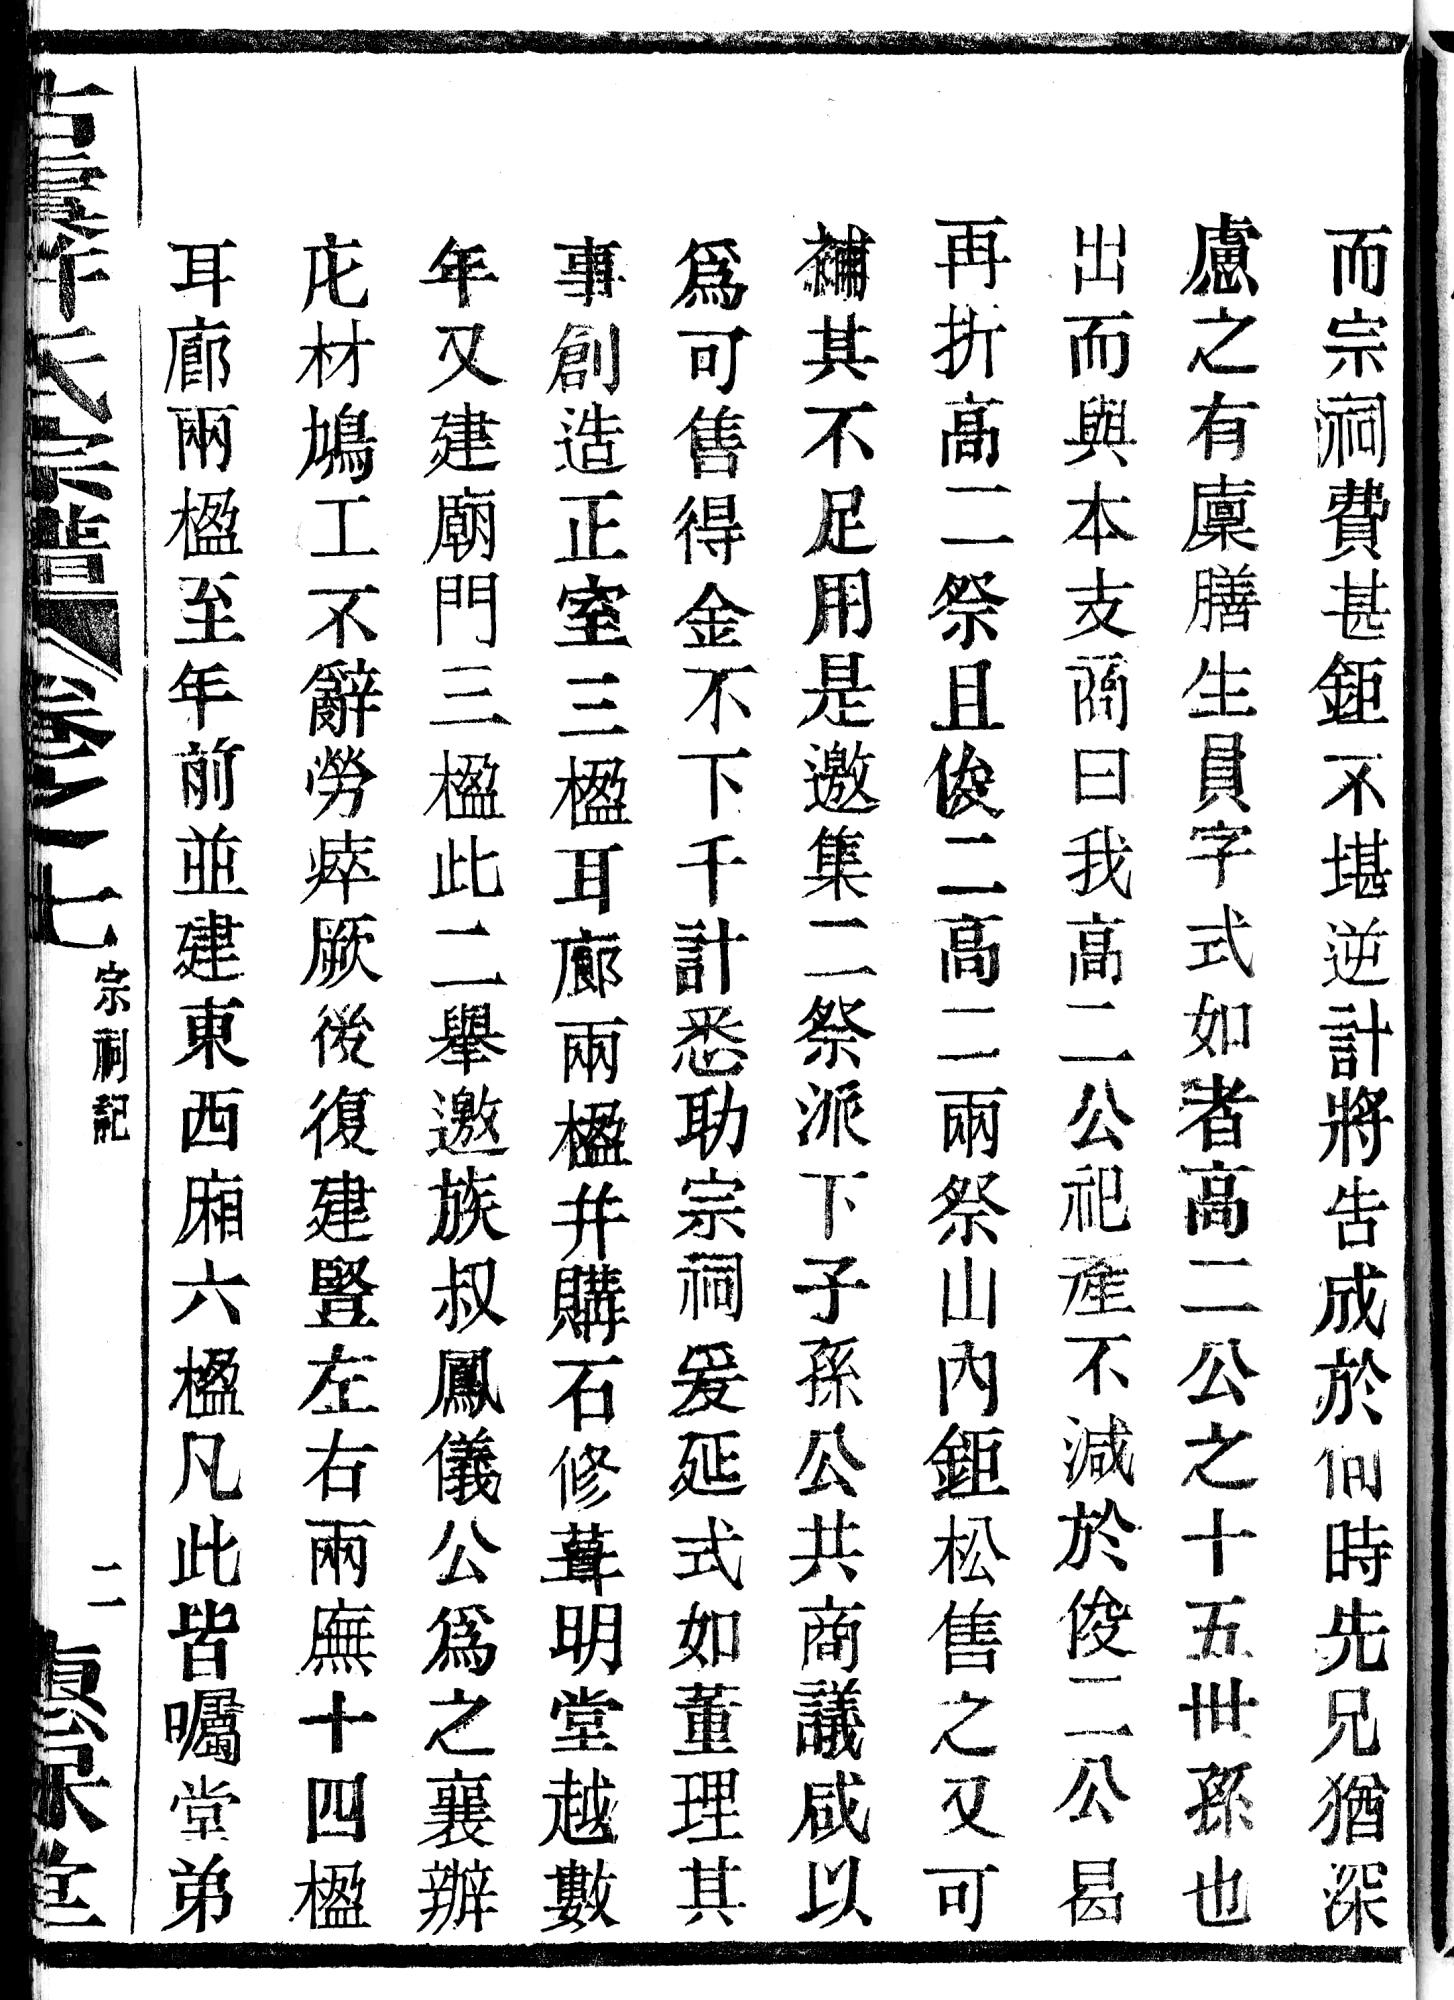 而宗祠費甚鉅不堪逆計將告成於何時先兄猶深
慮之有廩膳生員字式如者高二公之十五世孫也
出而與本支商曰我高二公祀產不減於俊二公曷
再折高二祭且俊二高二兩祭山內鉅松售之又可
補其不足用是邀集二祭派下子孫公共商議咸以
爲可售得金不下千計悉助宗祠爰延式如董理其
事創造正室三楹耳廊兩楹并購石修葺明堂越數
年又建廟門三楹此二舉邀族叔鳳儀公爲之襄辦
庀材鳩工不辭勞瘁厥後復建豎左右兩廡十四楹
耳廊兩楹至年前並建東西廂六楹凡此皆囑堂弟
氏宗譜 卷之七 宗祠記 二 堂